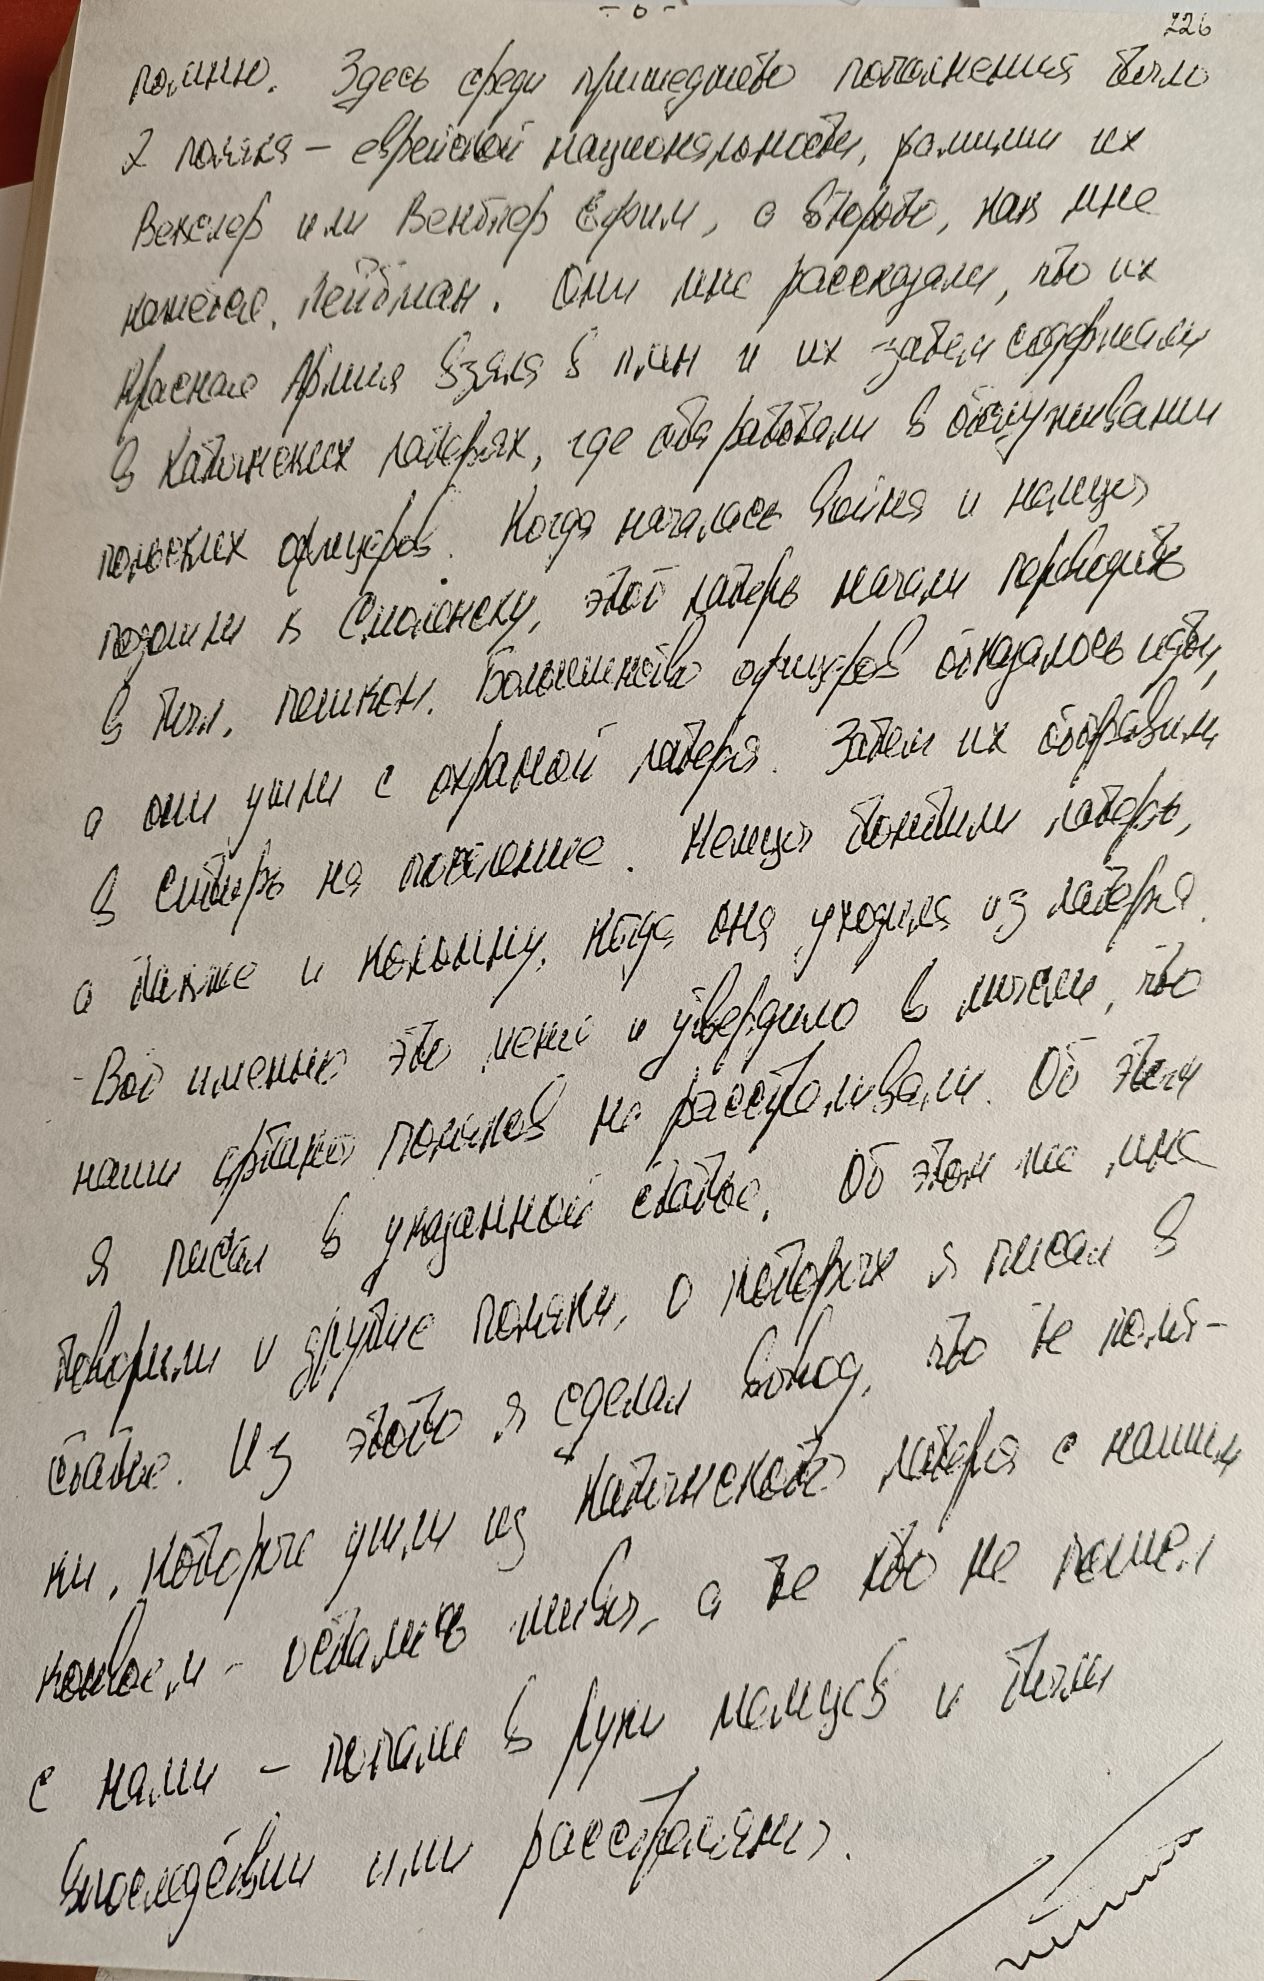 - 6 -
226
помню. Здесь среди пришедшего пополнения было
2 поляка – еврейской национальности, фамилии их
Векслер или Вентлер Ефим, а второго, как мне
кажется, Лейбман. Они мне рассказали, что их
Красная Армия взяла в плен и их затем содержали
в Катынских лагерях, где оба работали в обслуживании
польских офицеров. Когда началась война и немцы
подошли к Смоленску, этот лагерь начали переводить
в тыл, пешком. Большинство офицеров отказалось идти,
а они ушли с охраной лагеря. Затем их отправили
в Сибирь на поселение. Немцы бомбили лагерь,
а также и колонну, когда она уходила из лагеря.
Вот именно это меня и утвердило в мысли, что
наши органы поляков не расстреливали. Об этом
я писал в указанной статье. Об этом же мне
говорили и другие поляки, о которых я писал в
статье. Из этого я сделал вывод, что те поля-
ки, которые ушли из Катынского лагеря с нашим
конвоем – остались живы, а те кто не пошел
с нами – попали в руки немцев и были
впоследствии ими расстреляны.